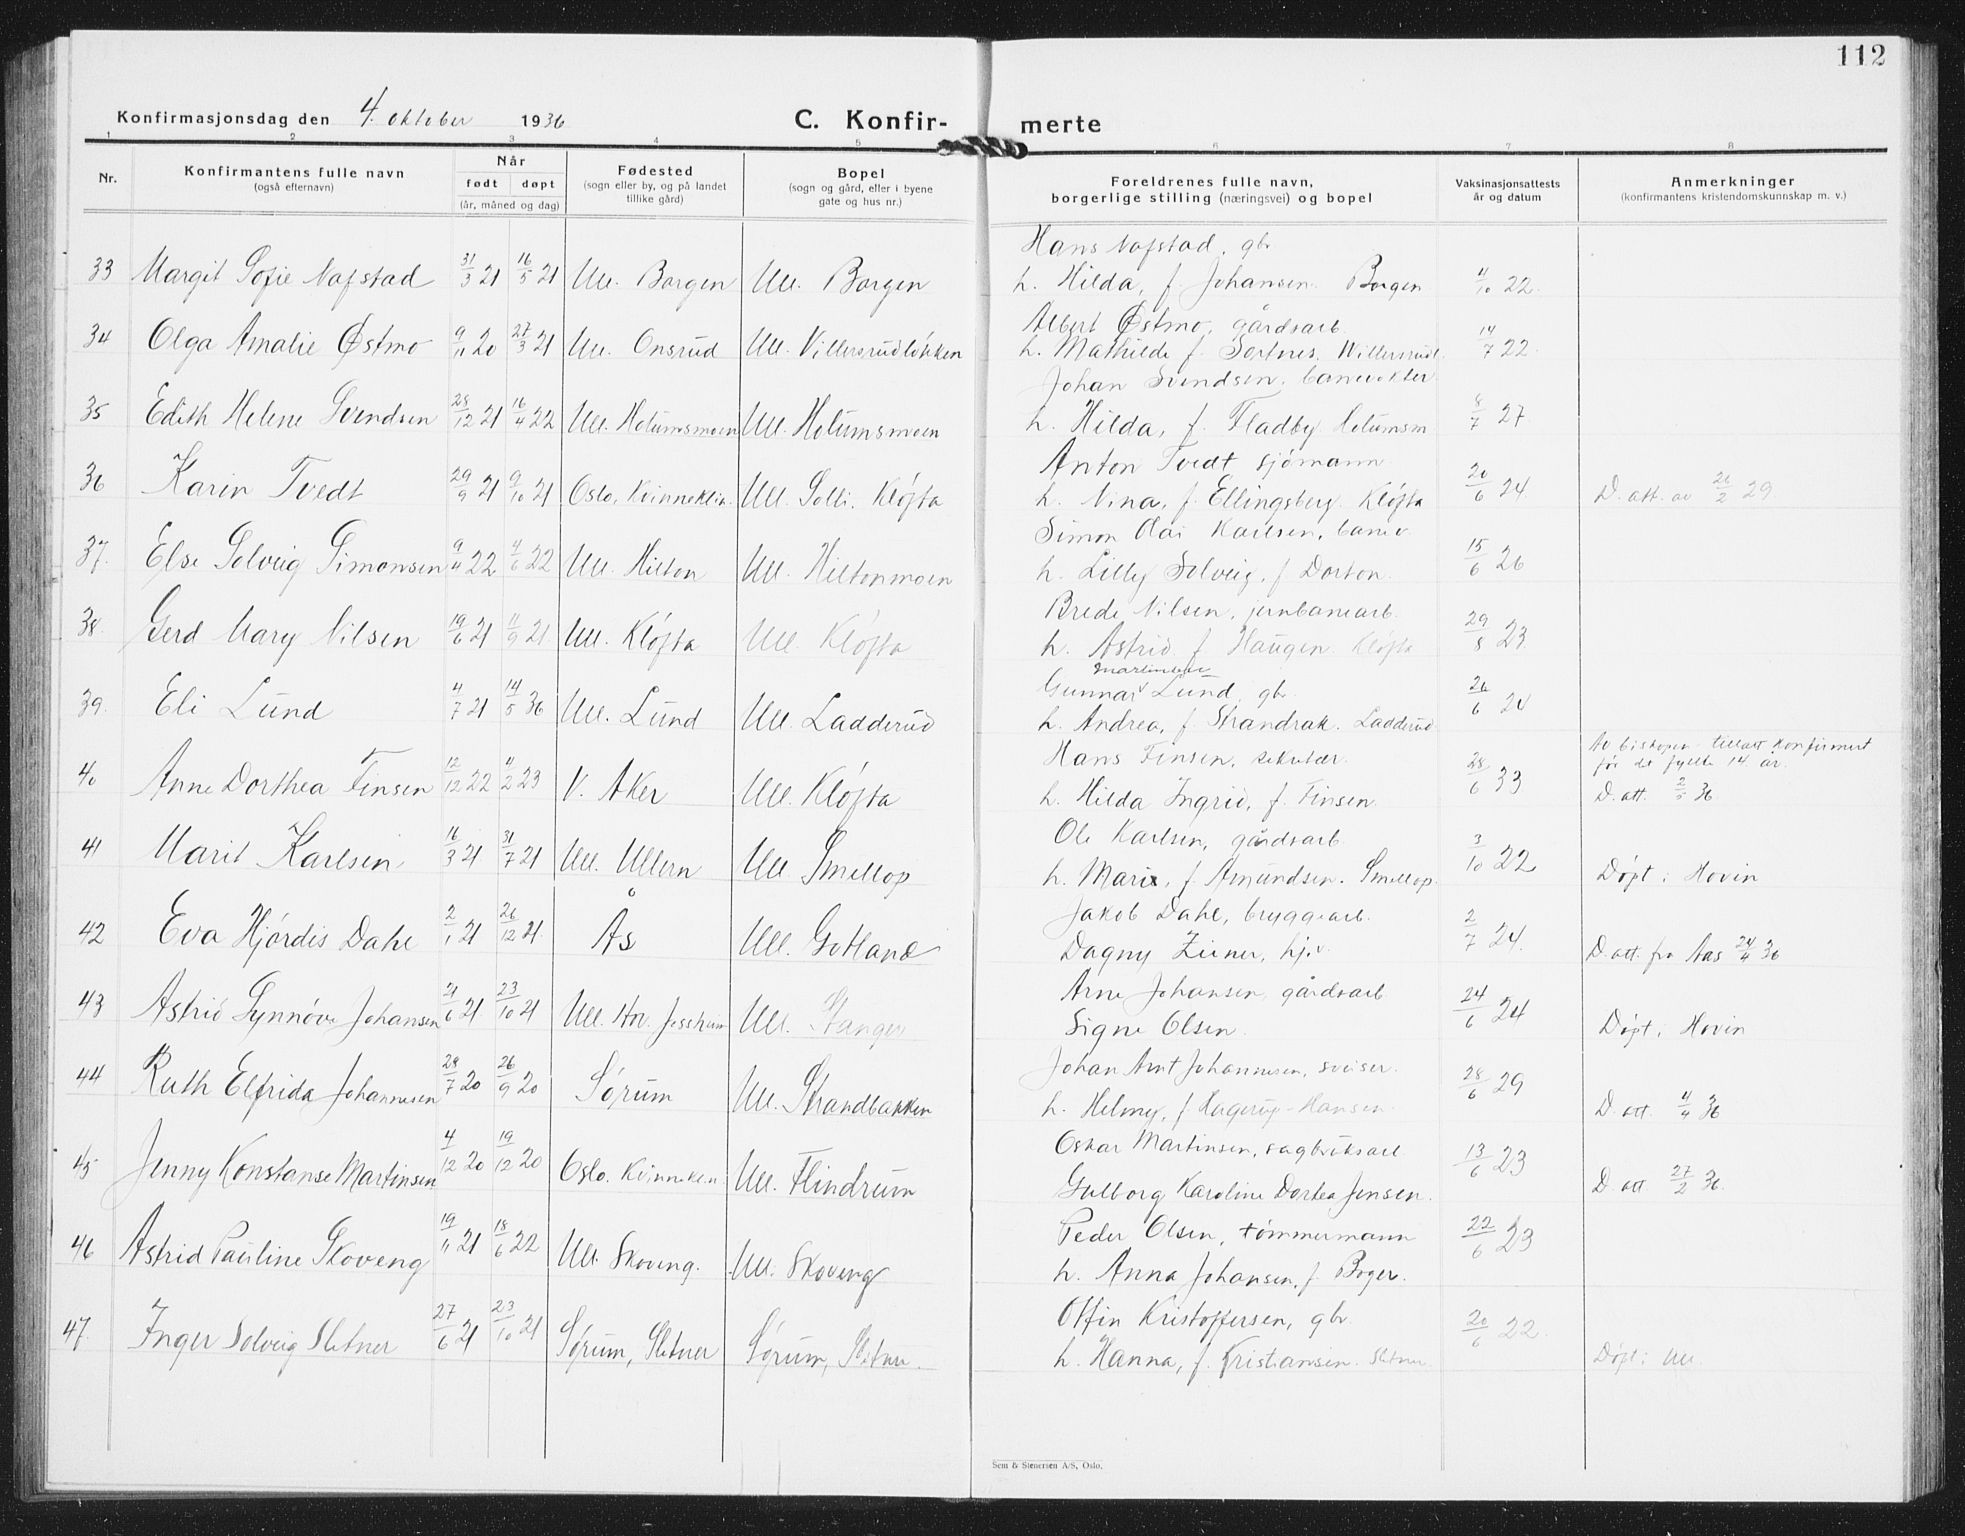 112
Konfirmasjonsdag den 4. oktober 1936
C. Konfir- merte
1 2 3 4 5 6 7 8
Nr.
Konfirmantens fulle navn
(også efternavn)
Når
født døpt
(år, måned og dag)
Fødested
(sogn eller by, og på landet
tillike gård)
Bopel
(sogn og gård, eller i byene
gate og hus nr.)
Foreldrenes fulle navn,
borgerlige stilling (næringsvei) og bopel
Vaksinasjonsattests
år og datum
Anmerkninger
(konfirmantens kristendomskunnskap m. v.)
Hans Nafstad, gbr
33 Margit Sofie Nafstad 31/3 21 16/5 21 Ull. Borgen Ull. Borgen h. Hilda, f. Johansen. Borgen 11/10 22.
Albert Østmo, gårdsarb.
34 Olga Amalie Østmo 9/11 20 27/3 21 Ull. Onsrud Ull. Villersrudløkken h. Mathilde f. Sortnes. Willersrudl. 14/7 22.
Johan Svendsen, banevokter
35 Edith Helene Svendsen 28/12 21 16/4 22 Ull. Holumsmoen Ull. Holumsmoen h. Hilda, f. Fladby Holumsm 8/7 27.
Anton Tvedt sjømann
36 Karin Tvedt 29/9 21 9/10 21 Oslo, Kvinneklin. Ull. Solli. Kløfta h. Nina, f. Ellingsberg. Kløfta 20/6 24. D. att. av 26/2 29
Simon Olai Karlsen, banev.
37. Else Solveig Simonsen 9/4 22 4/6 22 Ull. Hilton Ull. Hiltonmoen h. Lilly Solveig, f. Dorton. 15/6 26
Brede Nilsen, jernbanearb.
38. Gerd Mary Nilsen 19/6 21 11/9 21 Ull. Kløfta Ull. Kløfta h. Astrid f. Haugen Kløfta 29/8 23
Gunnar Lund, gbr.
39. Eli Lund 4/7 21 14/5 36 Ull. Lund Ull. Ladderud h. Andrea, f. Strandrak. Ladderud 26/6 24
Hans Finsen, sekretær. Av biskopen tillatt konfirmert
før de fyllte 14 år.
40 Anne Dorthea Finsen 12/12 22 11/2 23 V. Aker Ull. Kløfta h. Hilda Ingrid, f. Finsen. 28/6 33 D. att. 2/5 36
Ole Karlsen, gårdsarb
41 Marit Karlsen 16/3 21 31/7 21 Ull. Ullern Ull. Smellop h. Marie, f. Amundsen. Smellop. 3/10 22 Døpt i Hovin
Jakob Dahl, bryggearb.
42 Eva Hjørdis Dahl 2/1 21 26/12 21. Ås Ull. Gotland Dagny Zirner, hj.v. 2/7 24. D. att. fra Aas 24/4 36
Arne Johansen, gårdsarb
43 Astrid Synnøve Johansen 21/6 21 23/10 21 Ull. Hv. Jessheim Ull. Stanger Signe Olsen. 24/6 24 Døpt i Hovin
Johan Arnt Johannesen, sveiser.
44 Ruth Elfrida Johannesen 28/7 20 26/9 20 Sørum Ull. Strandbakken h. Helmy, f. Hagerup-Hansen. 28/6 29 D. att. 4/4 36
Oskar Martinsen, sagbruksarb.
45 Jenny Konstanse Martinsen 4/12 20 19/12 20 Oslo. Kvinneklin. Ull. Flindrum Gulborg Karoline Dortea Jensen. 13/6 23 D. att. 27/2 36.
Peder Olsen, tømmermann
46 Astrid Pauline Skoveng 19/11 21 18/6 22 Ull. Skoveng. Ull. Skoveng h. Anna Johansen, f. Boger. 22/6 23
Offin Kristoffersen, gbr.
47. Inger Solveig Sletner 27/6 21 23/10 21 Sørum, Sletner Sørum, Sletner. h. Hanna, f. Kristiansen. Sletner. 20/6 22. Døpt i Ull.
Sem & Stenersen A/S, Oslo.